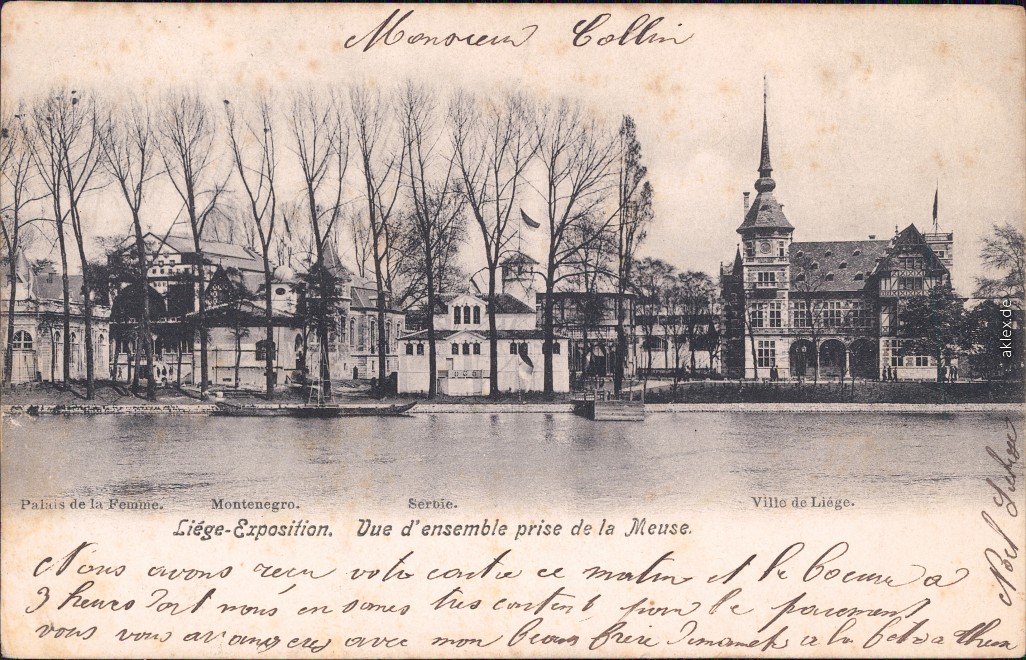 Monsieur Collin
aklex.de
Palais de la Femme. Montenegro. Serbie. Ville de Liége.
Liége-Exposition. Vue d'ensemble prise de la Meuse.
Nous avons reçu votr ce matin et le a
3 heures nous en somes tres content pour le paiement
vous vous arangerez avec mon Beau frère a la
Noël